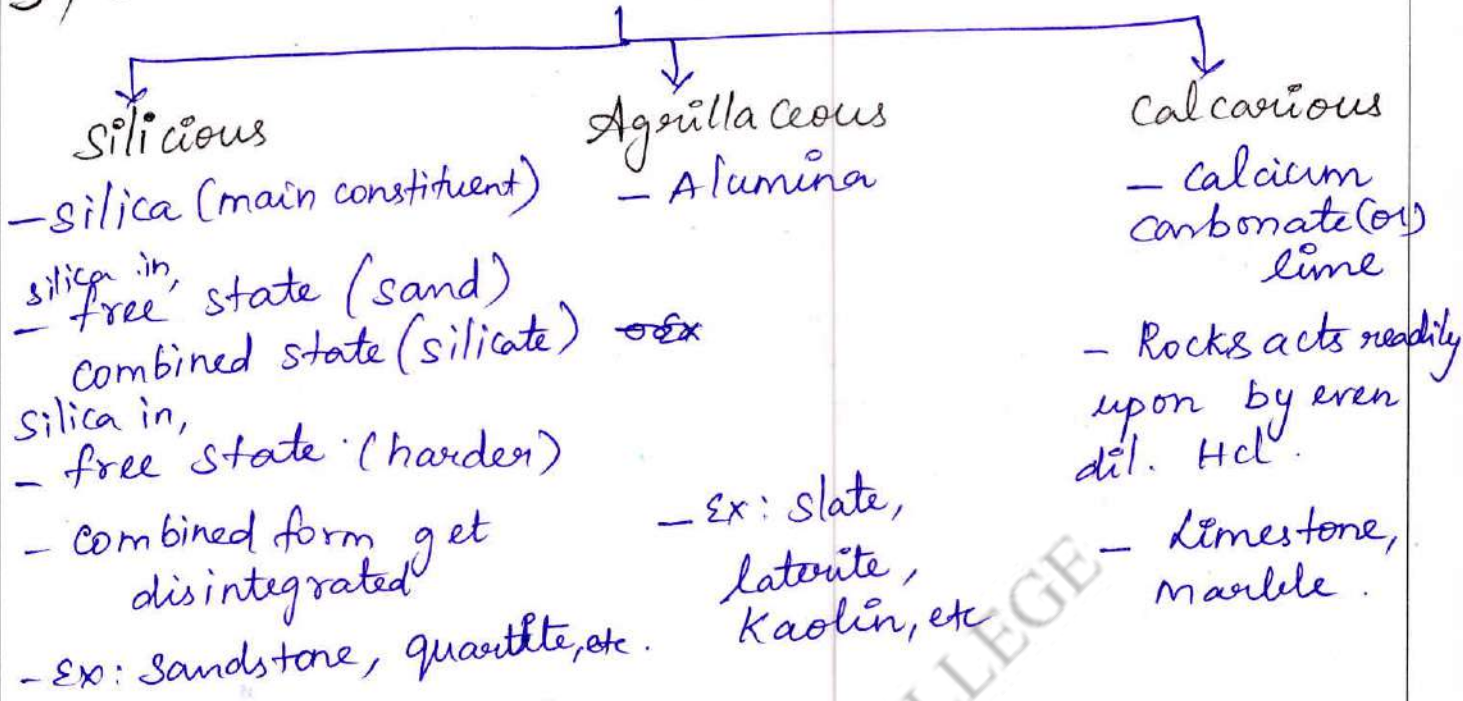 Silicious
- silica (main constituent)
silica in,
- free state (sand)
combined state (silicate)
silica in,
- free state (harder)
- combined form get
disintegrated
- Ex: Sandstone, quartite, etc.
Agrillaceous
- Alumina
- Ex: Slate,
laterite,
Kaolin, etc
Calcarious
- Calcium
Carbonate (or)
lime
- Rocks acts readily
upon by even
dil. Hcl.
- Limestone,
Marble.
LLEGE